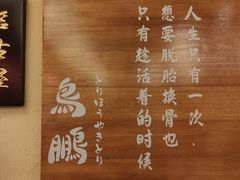 人生只有一次．
想要脫胎換骨也
只有趁活着的時候
とりほうやきとり
鳥鵬
古屋